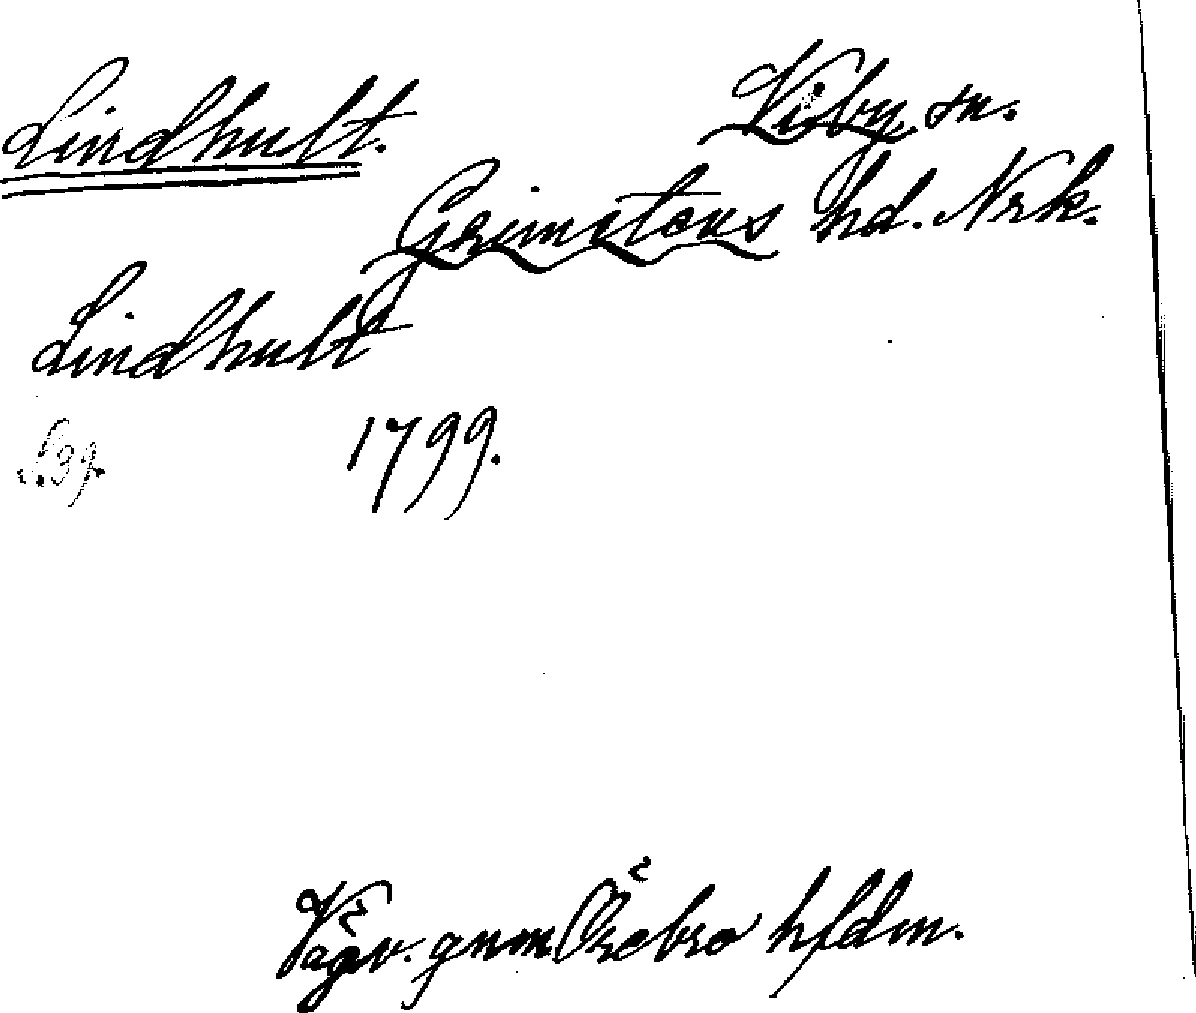 Lindhult. Viby sn.
Grimstens hd. Nrk.
Lindhult
S. 39. 1799.
Vägv. gnm Örebro hfdm.